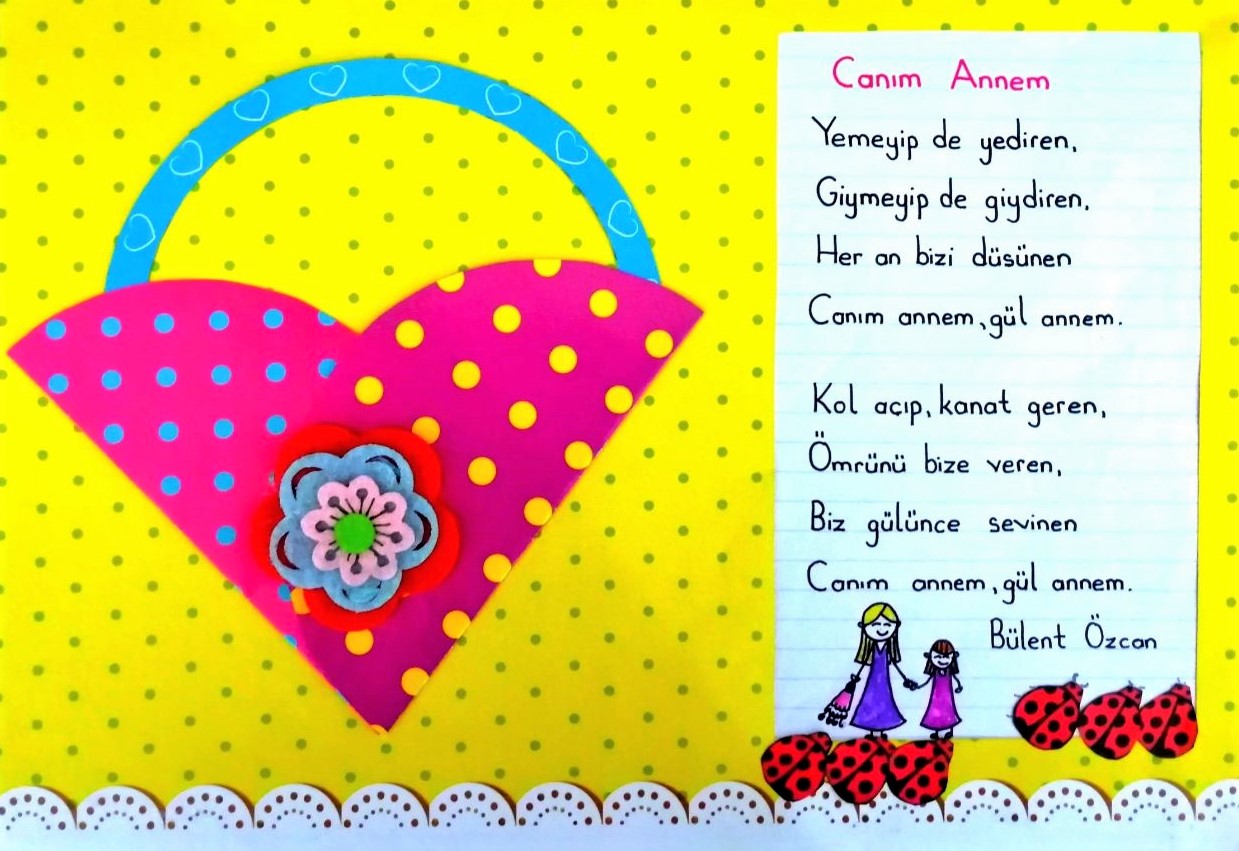 Canım Annem
Yemeyip de yediren,
Giymeyip de giydiren,
Her an bizi düsünen
Canım annem, gül annem.
Kol açıp, kanat geren,
Ömrünü bize veren,
Biz gülünce sevinen
Canım annem, gül annem.
Bülent Özcan